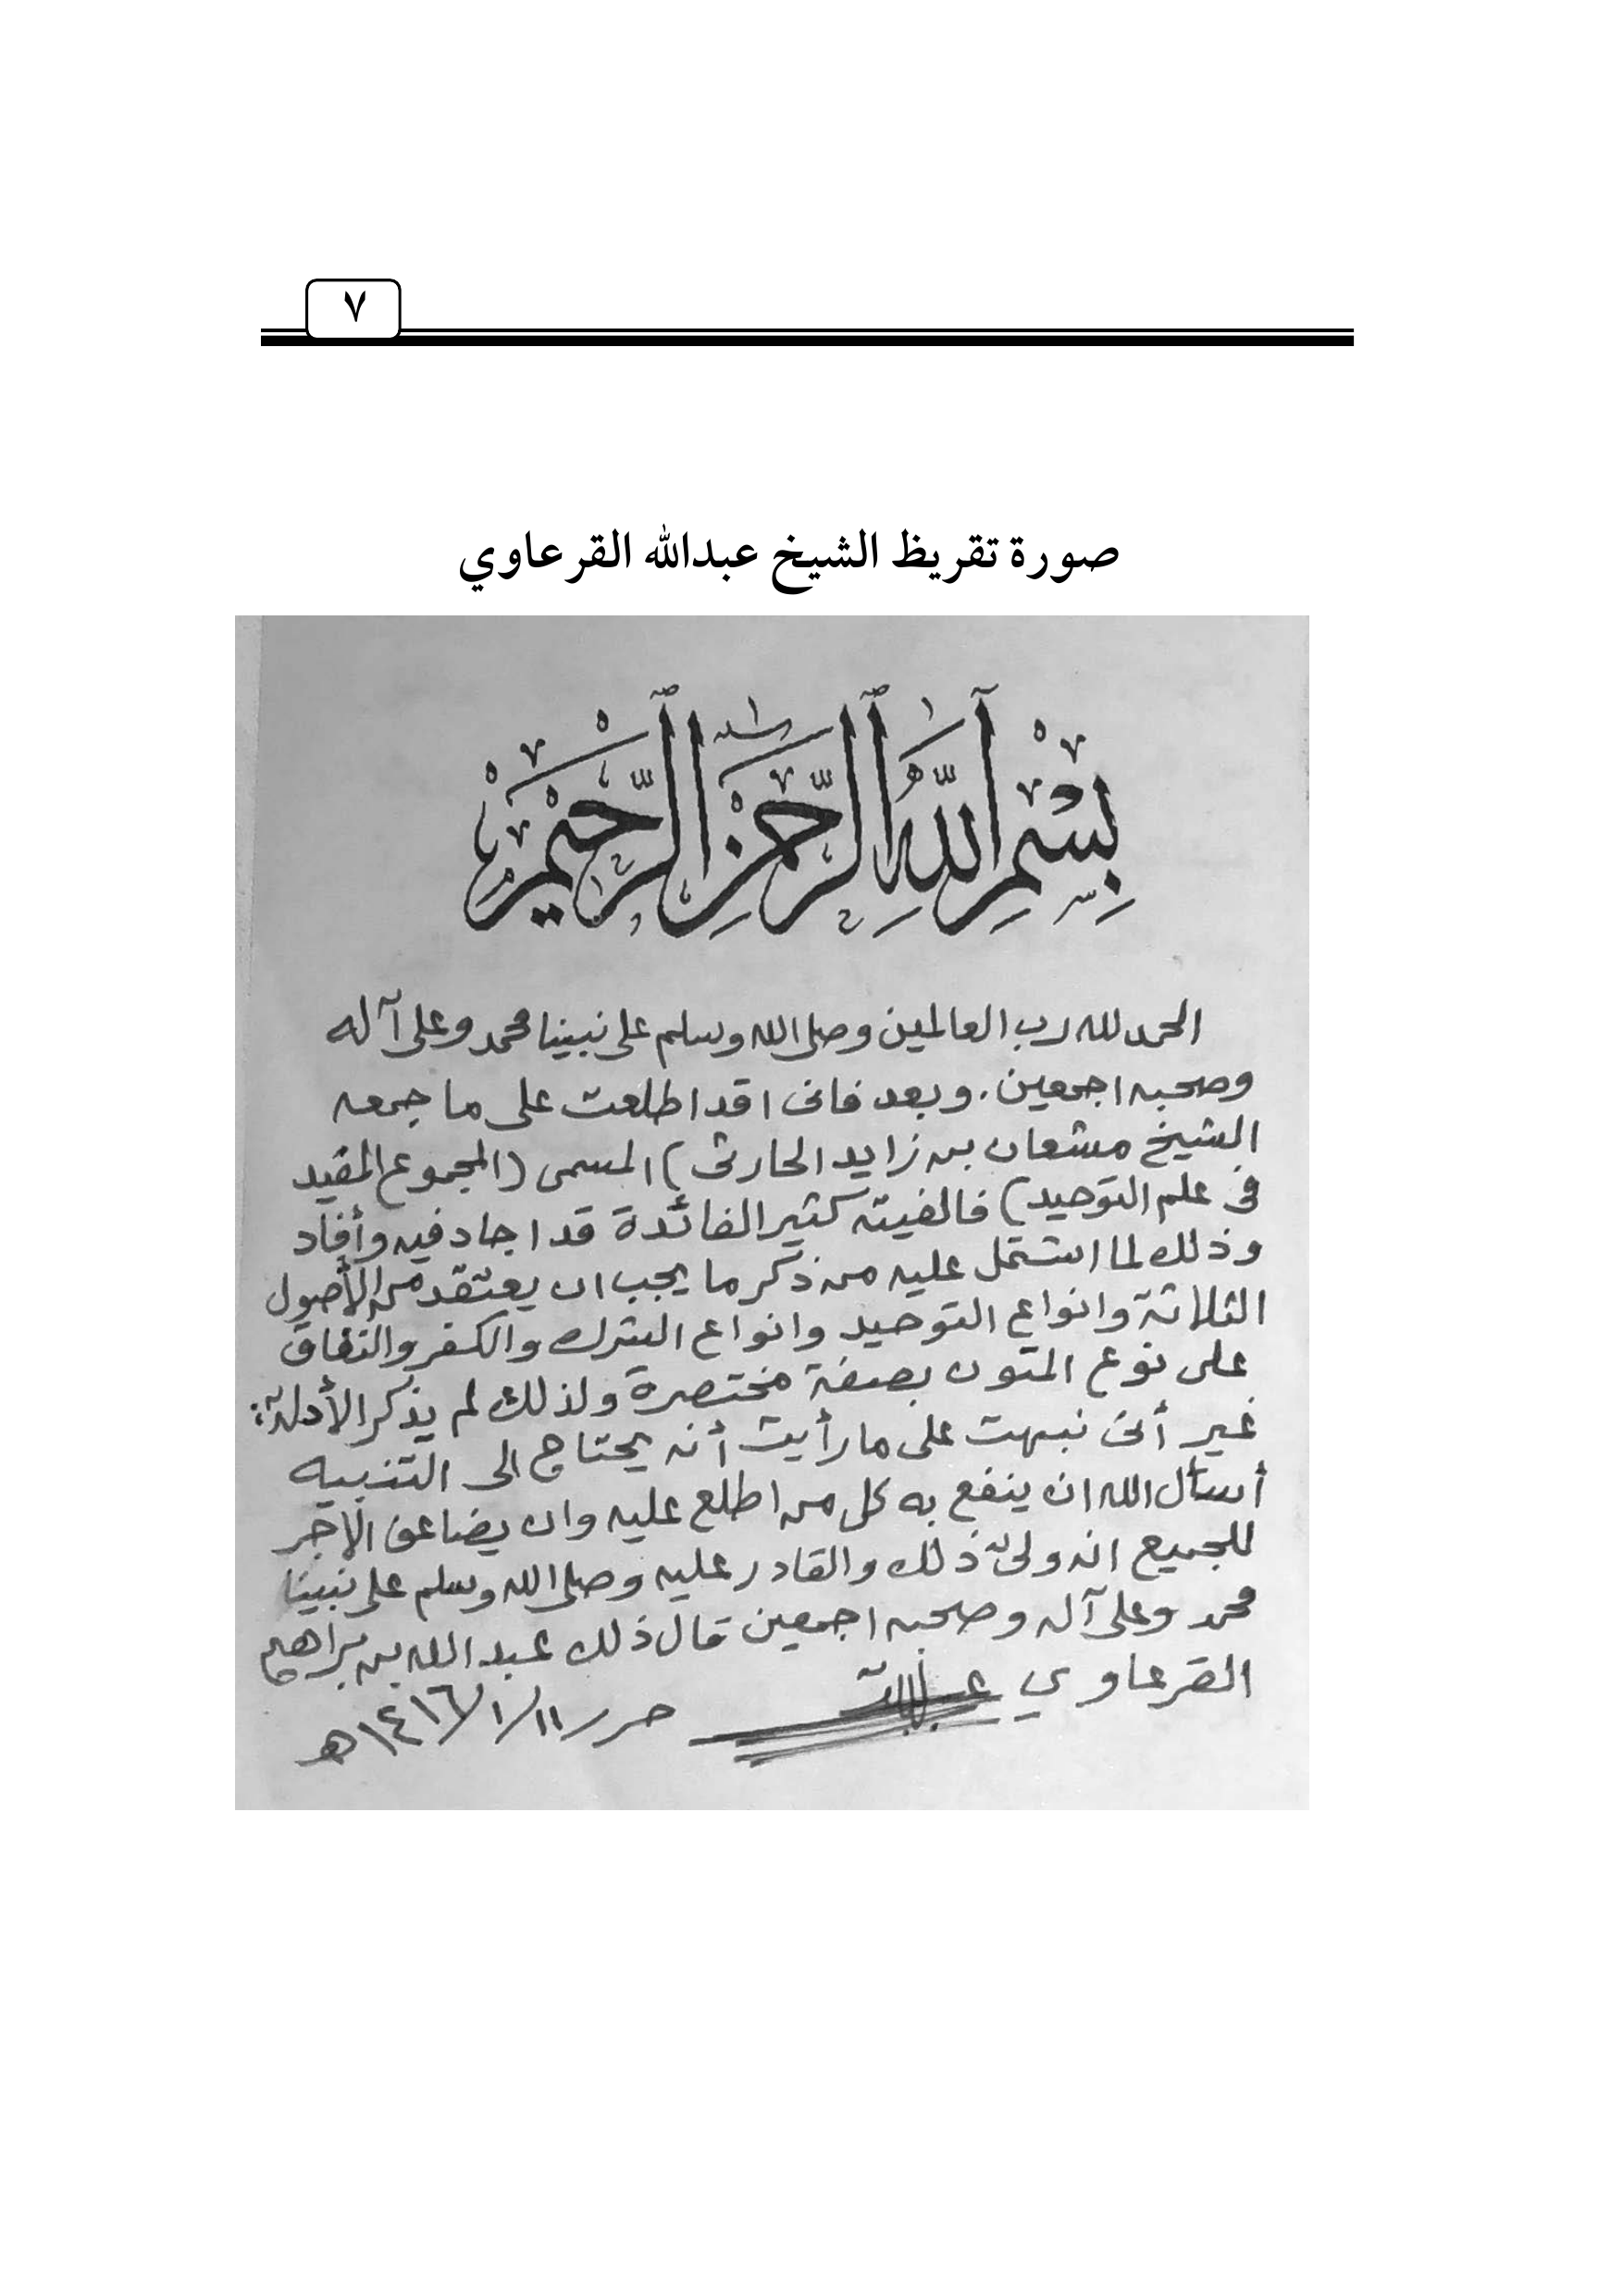 ٧
صورة تقريظ الشيخ عبدالله القرعاوي
بِسْمِ اللَّهِ الرَّحْمَنِ الرَّحِيمِ
الحمد لله رب العالمين وصلى الله وسلم على نبينا محمد وعلى آله
وصحبه اجمعين. وبعد فانى اقد اطلعت على ما جمعه
الشيخ مشعان بن زايد الحارثى) المسمى (المجموع المفيد
فى علم التوحيد) فالفيته كثير الفائدة قد اجاد فيه وأفاد
وذلك لما اشتمل عليه من ذكر ما يجب ان يعتقد من الأصول
الثلاثة وانواع التوحيد وانواع الشرك والكفر والنفاق
على نوع المتون بصفة مختصرة ولذلك لم يذكر الأدلة:
غير أنى نبهت على ما رأيت أنه يحتاج الى التنبيه
أسأل الله ان ينفع به كل من اطلع عليه وان يضاعف الاجر
للجميع انه ولىّ ذلك والقادر عليه وصلى الله وسلم على نبينا
محمد وعلى آله وصحبه اجمعين قال ذلك عبد الله بن براهيم
القرعاوي
حرر ١١/١/١٤١٦هـ